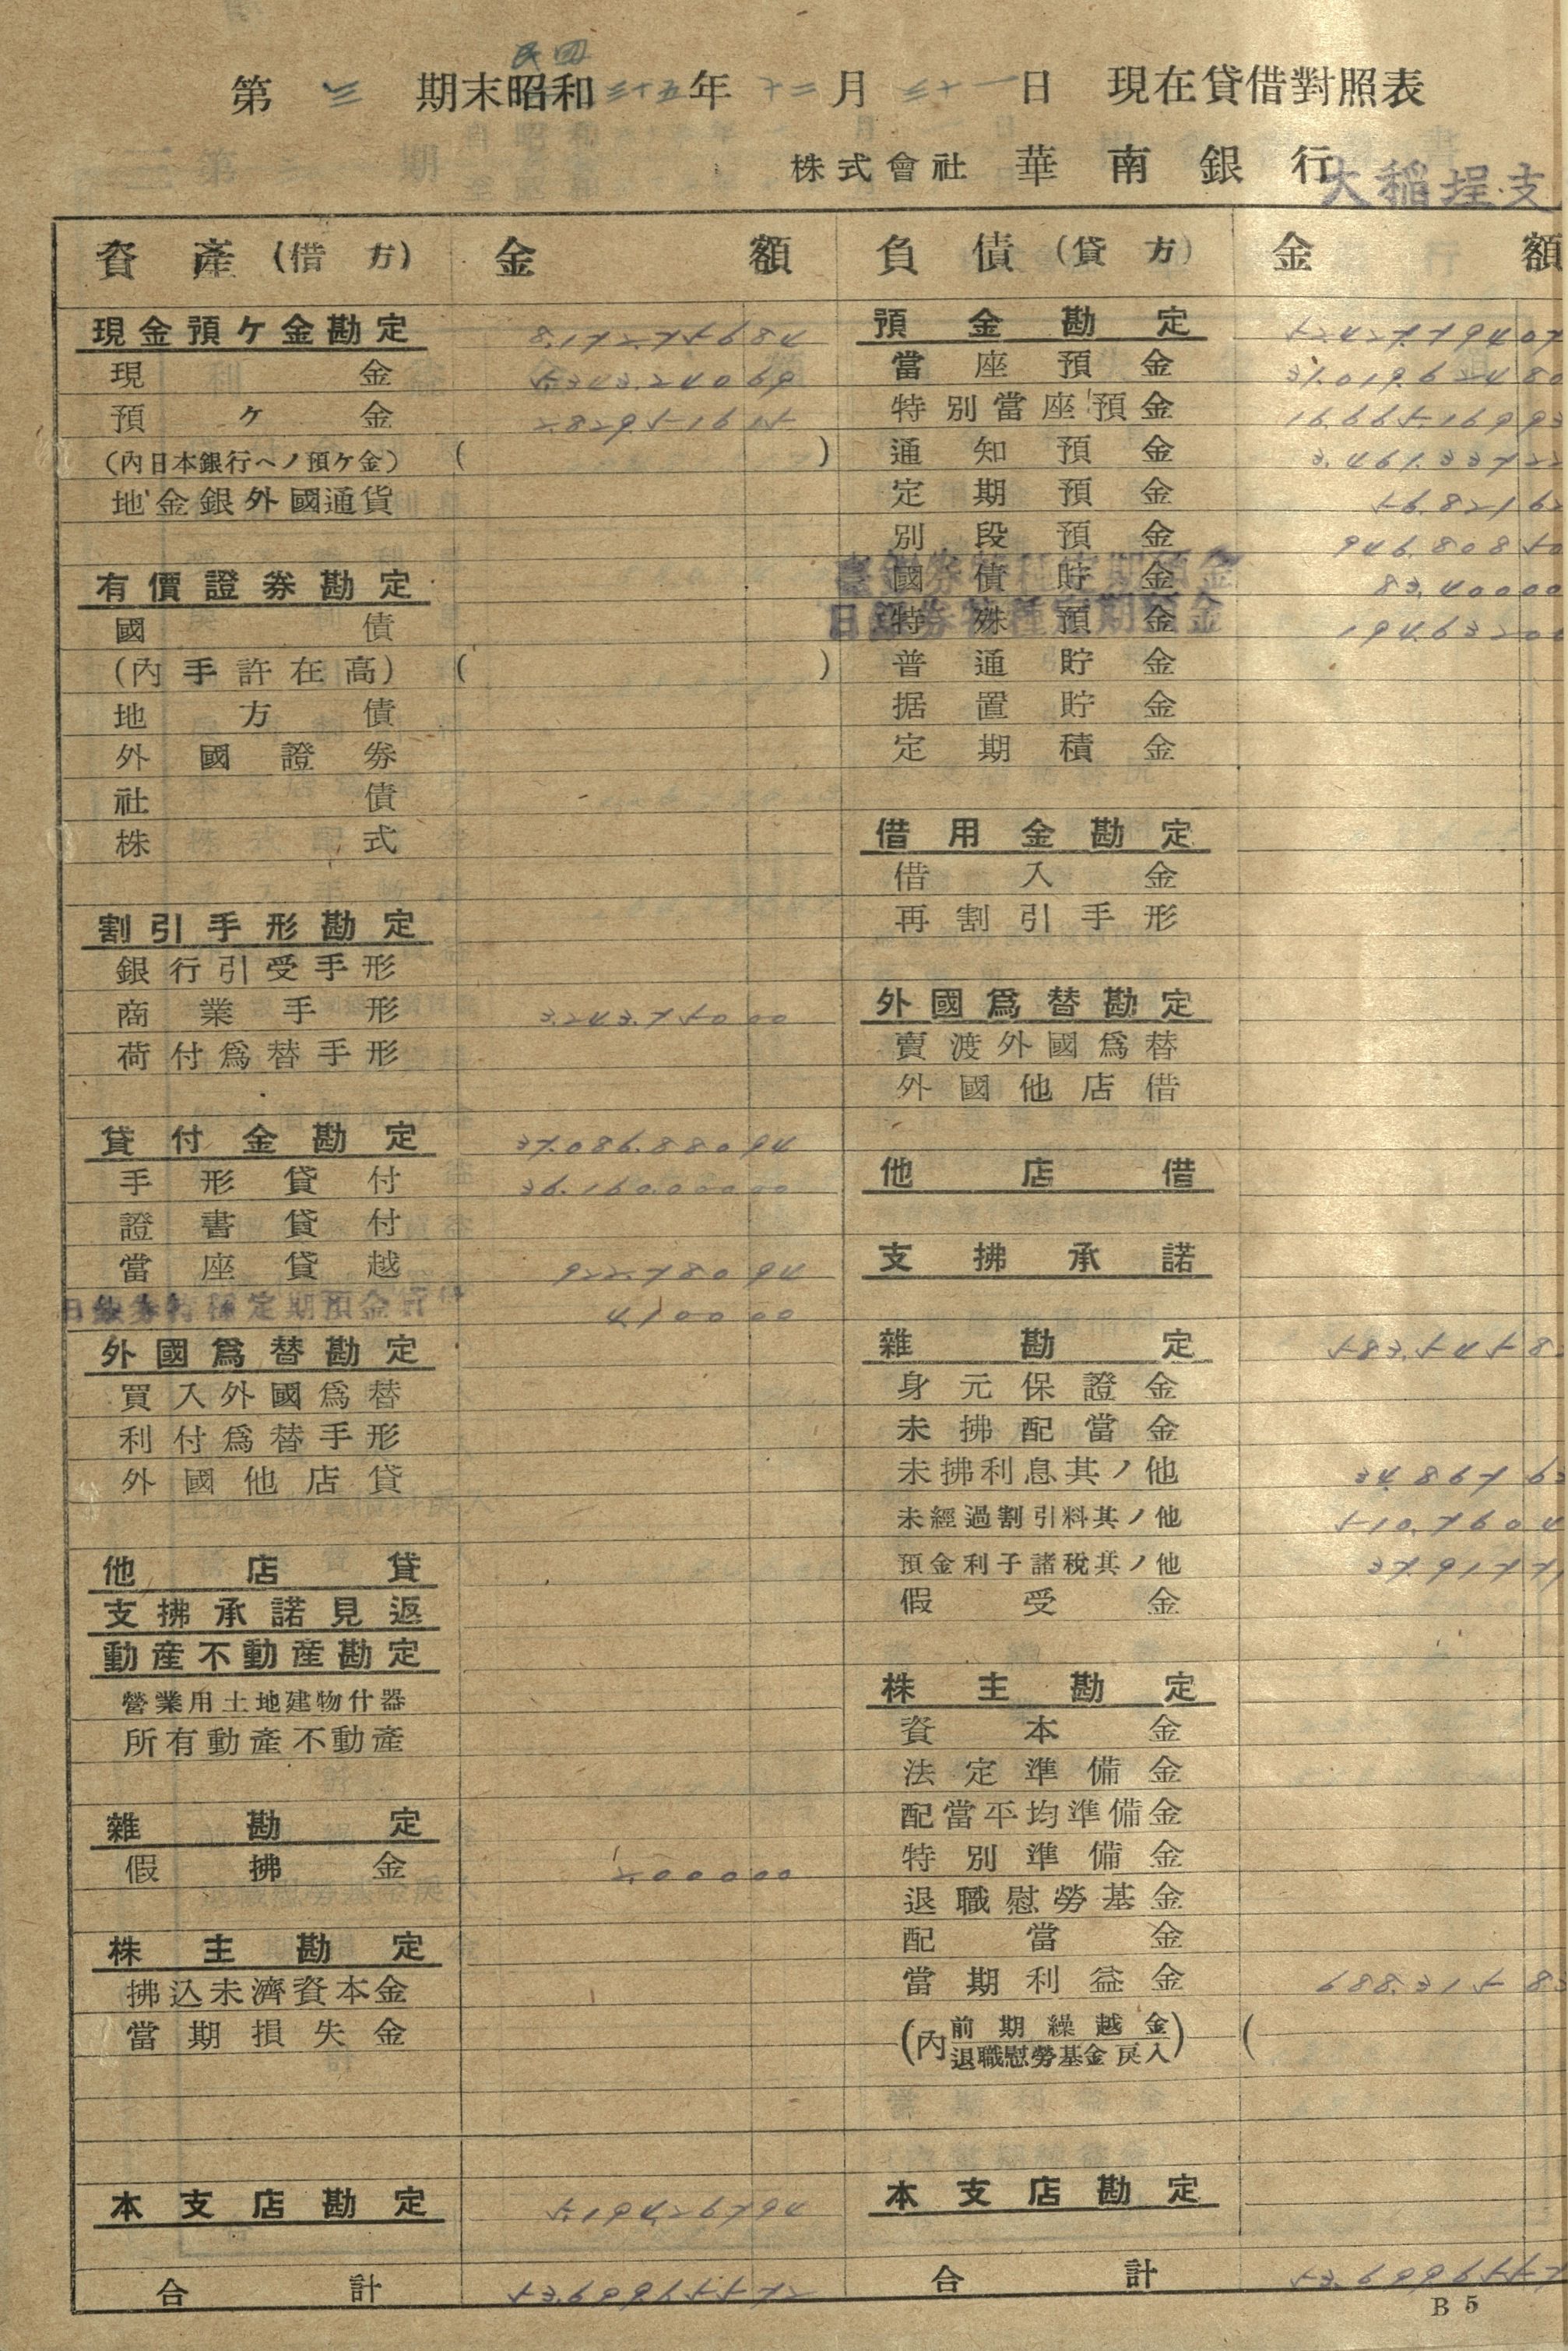 第 三 期末昭和 民國 三十五年 十二月 三十一日 現在貸借對照表
株式會社 華南銀行 大稻埕支
資產(借方) 金額 負債(貸方) 金額
現金預ケ金勘定 8,172,756 84 預金勘定 52,427,794 07
現金 5,343,240 69 當座預金 31,019,624 80
預ケ金 2,829,516 15 特別當座預金 16,665,169 93
(內日本銀行ヘノ預ケ金) ( ) 通知預金 3,461,337 22
地金銀外國通貨 定期預金 56,821 62
別段預金 946,808 50
有價證券勘定 國債貯金 臺銀券特種定期預金 83,400 00
國債 特殊預金 日銀券特種定期預金 194,632 00
(內手許在高) ( ) 普通貯金
地方債 据置貯金
外國證券 定期積金
社債
株式 借用金勘定
借入金
割引手形勘定 再割引手形
銀行引受手形
商業手形 3,243,750 00 外國爲替勘定
荷付爲替手形 賣渡外國爲替
外國他店借
貸付金勘定 37,086,880 94
手形貸付 36,160,000 00 他店借
證書貸付
當座貸越 922,780 94 支拂承諾
日銀券特種定期預金計 4,100 00
外國爲替勘定 雜勘定 583,545 8
買入外國爲替 身元保證金
利付爲替手形 未拂配當金
外國他店貸 未拂利息其ノ他 34,867 63
未經過割引料其ノ他 510,760 4
他店貸 預金利子諸稅其ノ他 37,917 7
支拂承諾見返 假受金
動產不動產勘定
營業用土地建物什器 株主勘定
所有動產不動產 資本金
法定準備金
雜勘定 配當平均準備金
假拂金 2,000 00 特別準備金
退職慰勞基金
株主勘定 配當金
拂込未濟資本金 當期利益金 688,315 83
當期損失金 (內前期繰越金 退職慰勞基金戾入) (
本支店勘定 5,194,267 94 本支店勘定
合計 53,699,655 72 合計 53,699,655 7
B 5